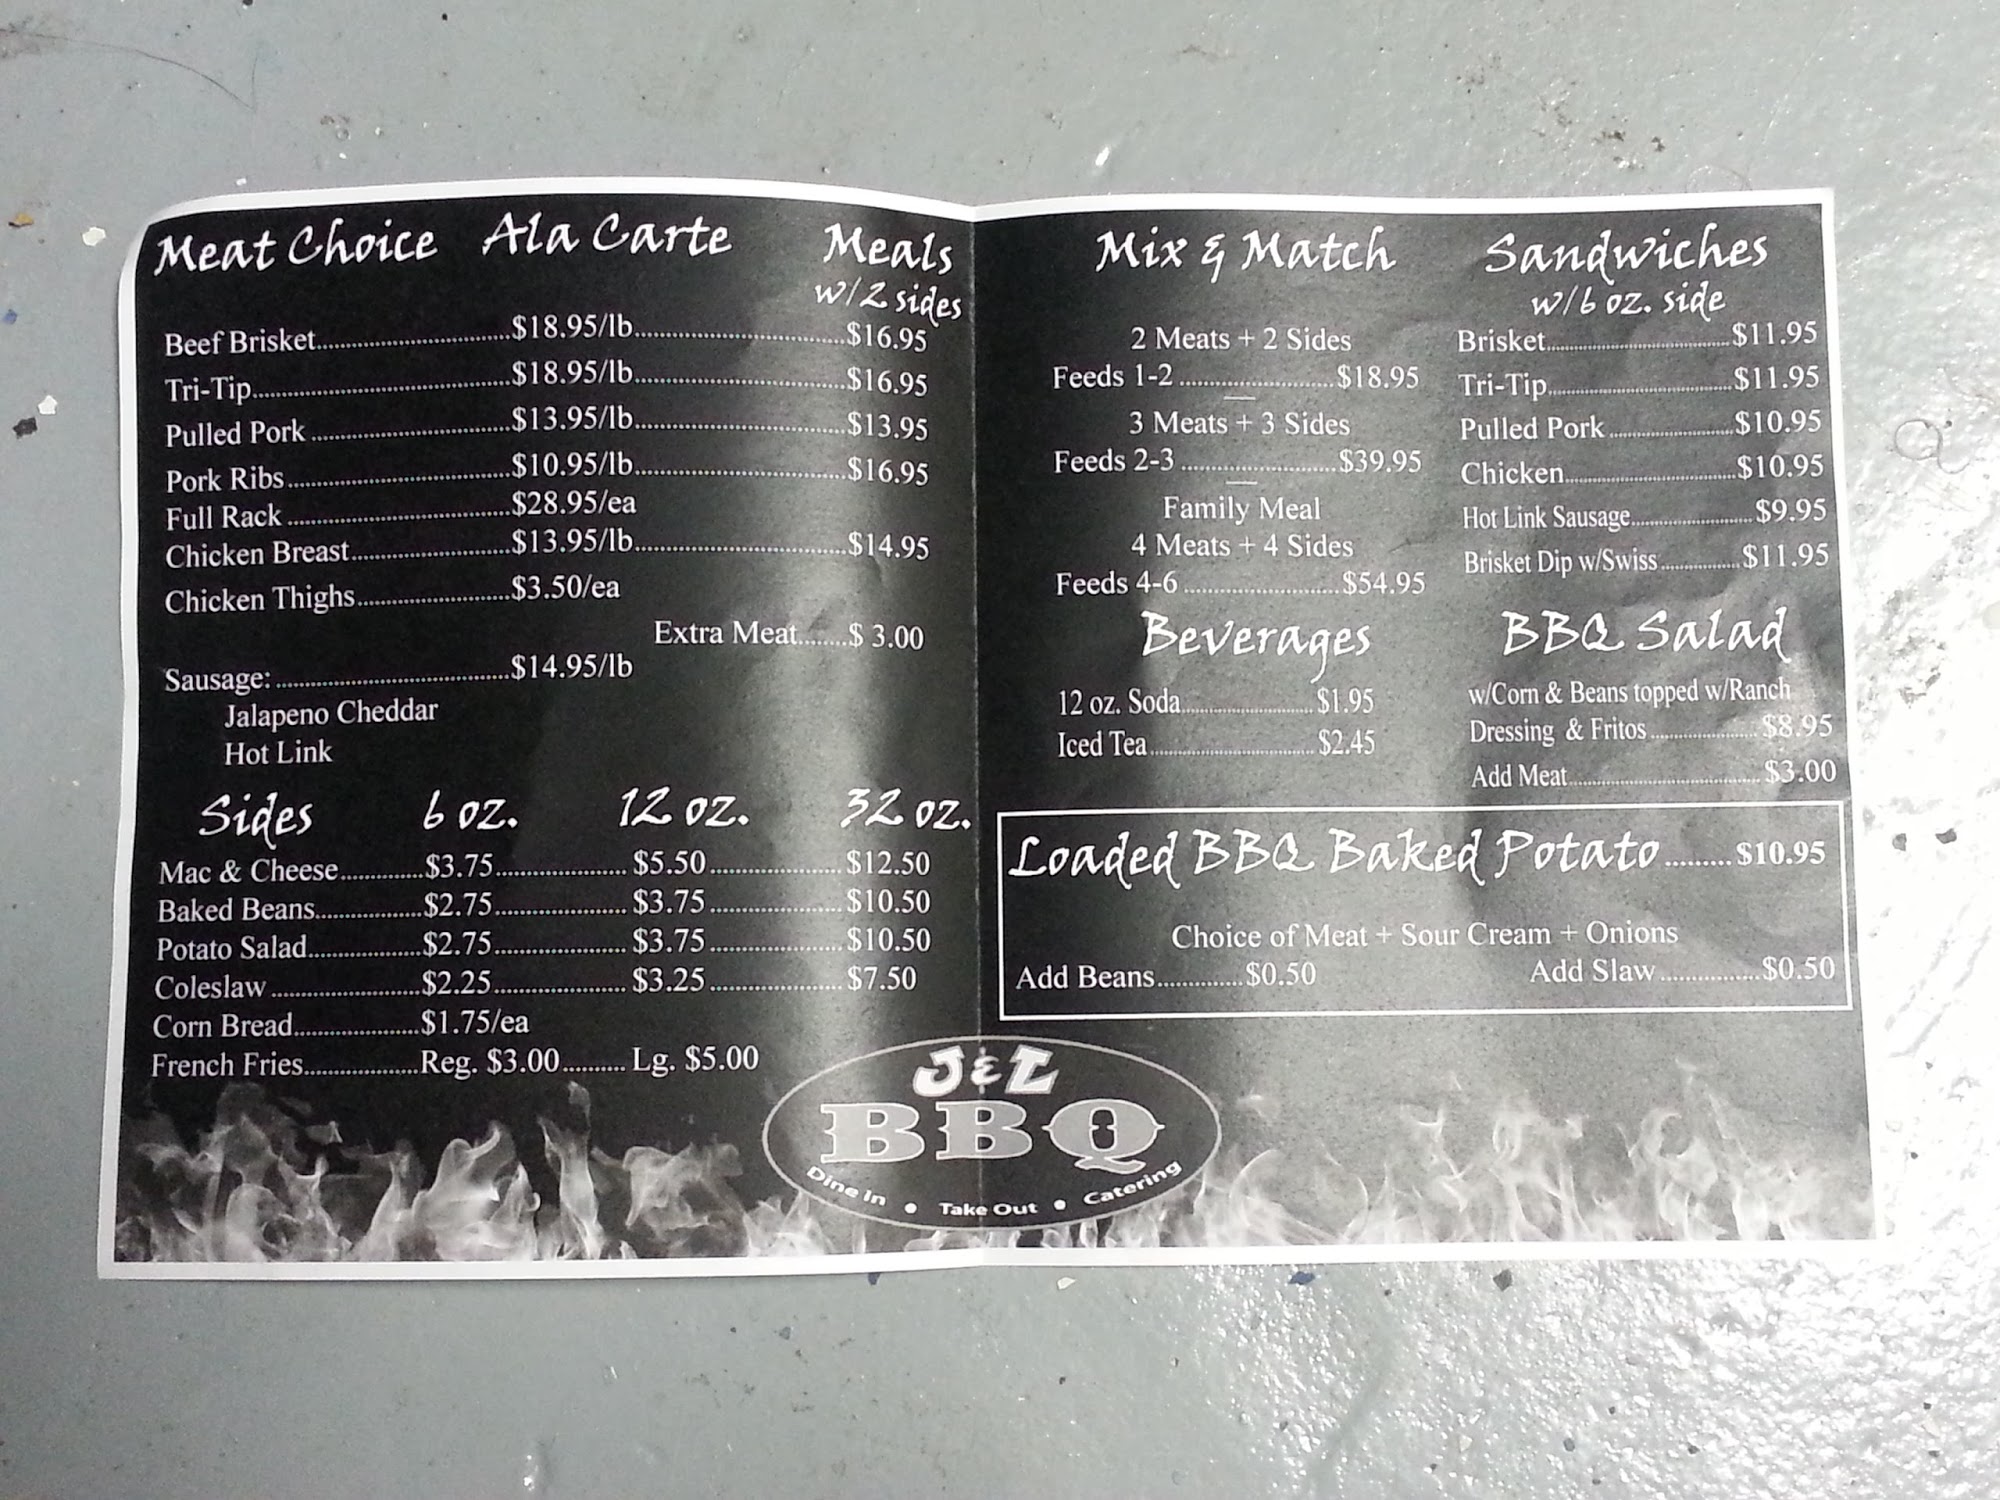 Meat Choice Ala Carte Meals
w/2 sides
Beef Brisket $18.95/lb $16.95
Tri-Tip $18.95/lb $16.95
Pulled Pork $13.95/lb $13.95
Pork Ribs $10.95/lb $16.95
Full Rack $28.95/ea
Chicken Breast $13.95/lb $14.95
Chicken Thighs $3.50/ea
Extra Meat $ 3.00
Sausage: $14.95/lb
Jalapeno Cheddar
Hot Link
Sides 6 oz. 12 oz. 32 oz.
Mac & Cheese $3.75 $5.50 $12.50
Baked Beans $2.75 $3.75 $10.50
Potato Salad $2.75 $3.75 $10.50
Coleslaw $2.25 $3.25 $7.50
Corn Bread $1.75/ea
French Fries Reg. $3.00 Lg. $5.00
Mix & Match
2 Meats + 2 Sides
Feeds 1-2 $18.95
3 Meats + 3 Sides
Feeds 2-3 $39.95
Family Meal
4 Meats + 4 Sides
Feeds 4-6 $54.95
Beverages
12 oz. Soda $1.95
Iced Tea $2.45
Sandwiches
w/6 oz. side
Brisket $11.95
Tri-Tip $11.95
Pulled Pork $10.95
Chicken $10.95
Hot Link Sausage $9.95
Brisket Dip w/Swiss $11.95
BBQ Salad
w/Corn & Beans topped w/Ranch
Dressing & Fritos $8.95
Add Meat $3.00
Loaded BBQ Baked Potato $10.95
Choice of Meat + Sour Cream + Onions
Add Beans $0.50 Add Slaw $0.50
J&L
BBQ
Dine In • Take Out • Catering